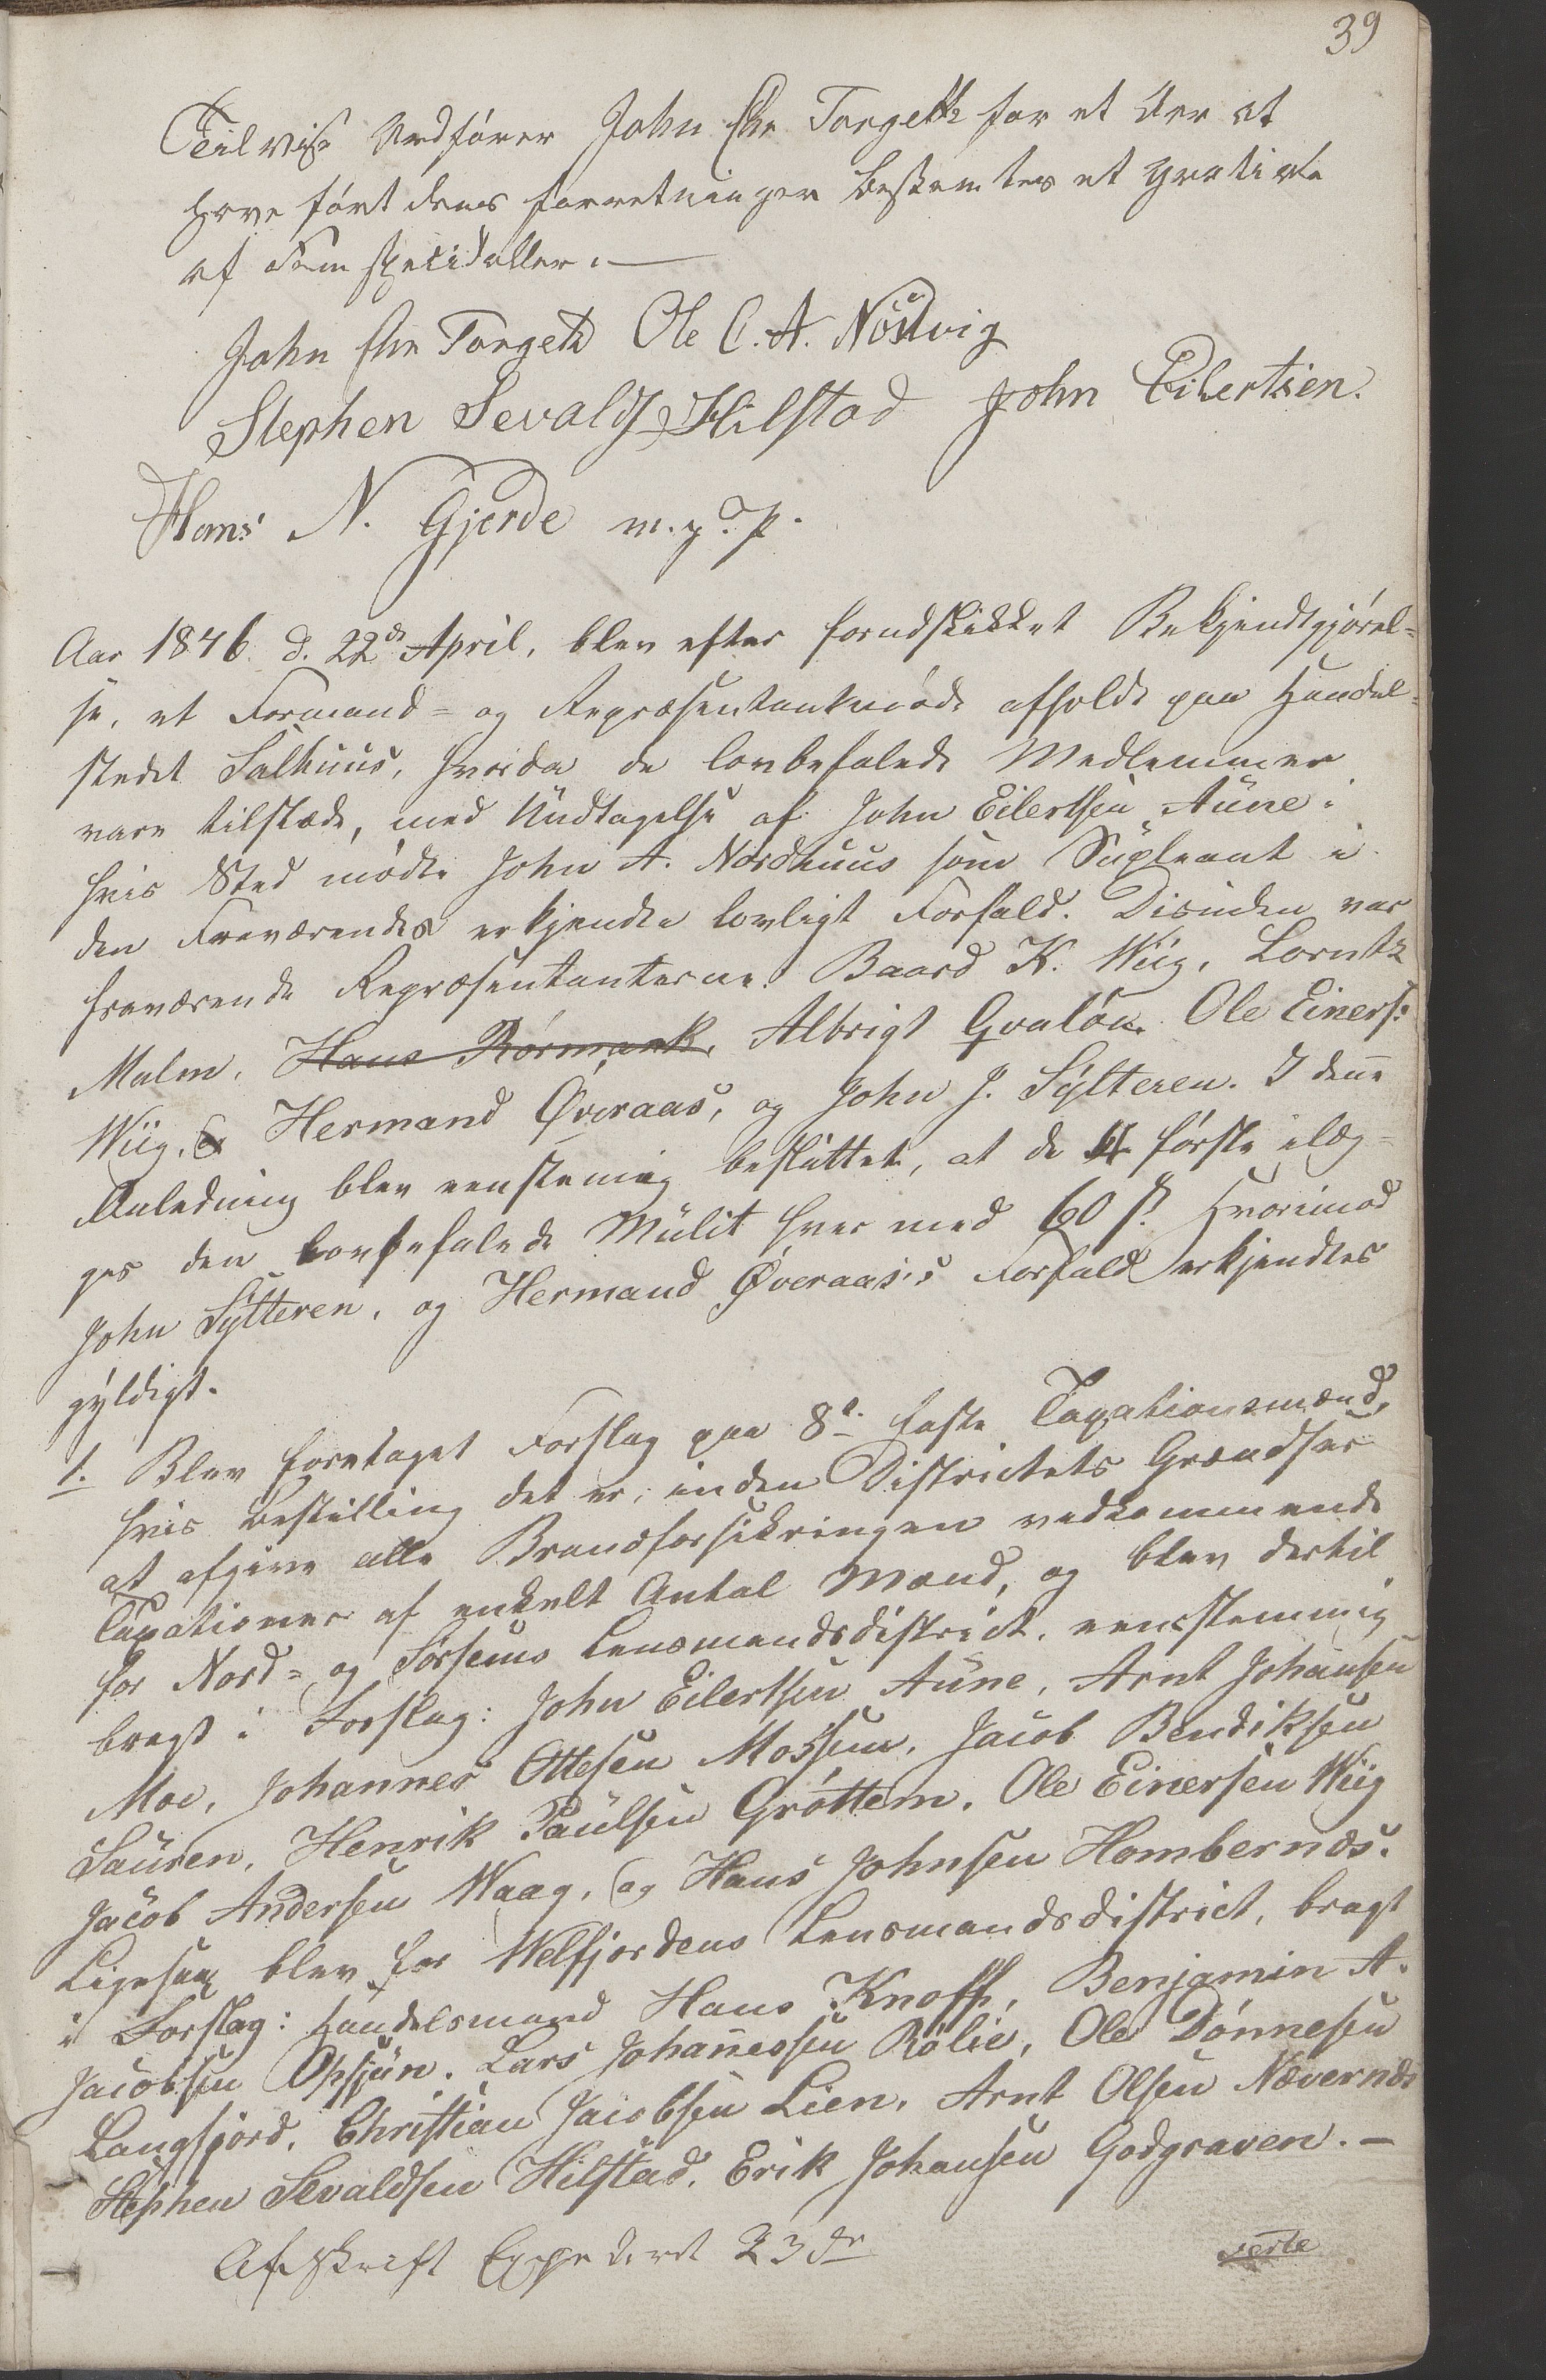 39
Tilviste Ordfører John Chr Torgeth for et Aar at
have ført denes forretninger bestemtes et gratiale
af Fem specidaller. —
John Chr Torgeth Ole C. A. Nordvig
Stephen Sevalds Hilstad John Eilertsen.
Hans N. Gjerde m. p. P.
Aar 1846 d. 22de April, blev efter forudskikket Bekjendtgjørel=
se, et Formand= og Repræsentantmøde afholdt paa Handel=
stedet Salhuus, hvorda de lovbefalede Medlemmer
vare tilstæde, med Undtagelse af John Eilertsen Aune i
hvis Sted mødte John A. Nordhuus som Supleant i
den Fraværendes erkjendte lovligt Forfald. Desuden var
fraværende Repræsentanterne. Baard K. Wiig, Lorntz
Malm, Hans Rørmark, Albrigt Qvaløn. Ole Einers:
Wiig, & Hermand Øveraas, og John J. Sylteren. I denne
Anledning blev eenstemig besluttet, at de 4 første ilæg=
ges den lovbefalede Mulct hver med 60 s. Hvorimod
John Sylteren, og Hermand Øveraas's Forfald erkjendtes
gyldigt.
1. Blev foretaget Forslag paa 8te faste Taxationsmænd,
hvis bestilling det er, inden Districtets Grændser
at afgive alle Brandforsikringen vedkommende
Taxationer af enkelt Antal Mænd, og blev dertil
for Nord= og Sørsems Lensmandsdistrict, eenstemmig
bragt i Forslag: John Eilertsen Aune, Arnt Johansen
Moe, Johannes Ottesen Mossem, Jacob Bendiksen
Sauren, Henrik Paulsen Grøttem. Ole Einersen Wiig
Jacob Andersen Waag, og Hans Johnsen Hombernæs.
Ligesaa blev for Welfjordens Lensmandsdistrict, bragt
i Forslag: Handelsmand Hans Knoph, Benjamin A.
Jacobsen Opsjøn. Lars Johannessen Rølie, Ole Dønnesen
Langfjord. Christian Jacobsen Lien, Arnt Olsen Nævernæs
Stephen Sevaldsen Hilstad. Erik Johansen Godgraven. —
Afskrift Expederet 23de
verte